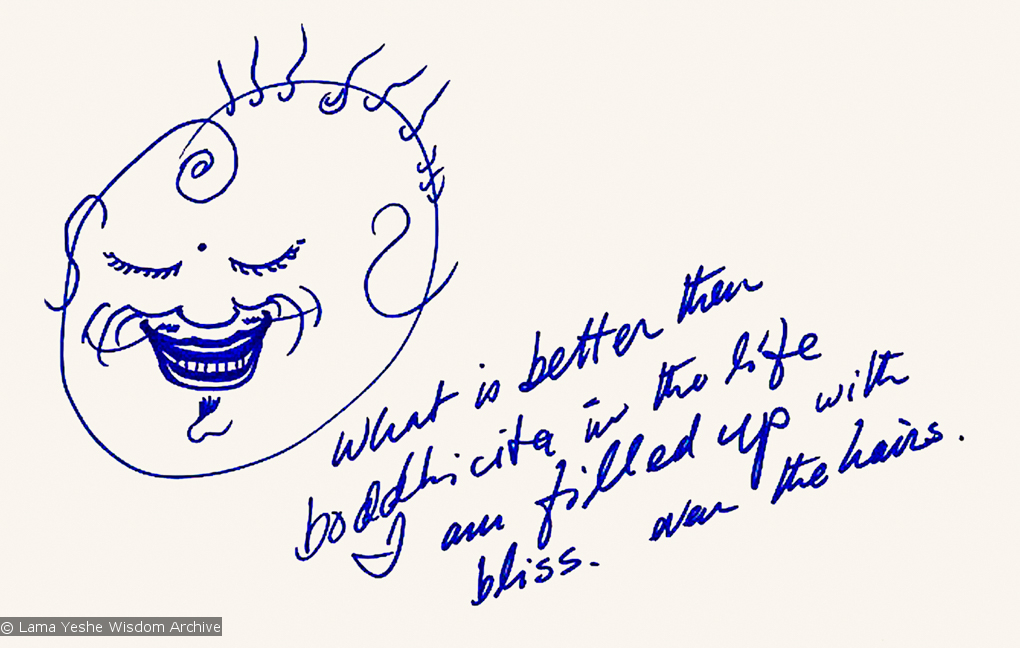 What is better then
boddhicita in the life
I am filled up with
bliss. even the hairs.
© Lama Yeshe Wisdom Archive